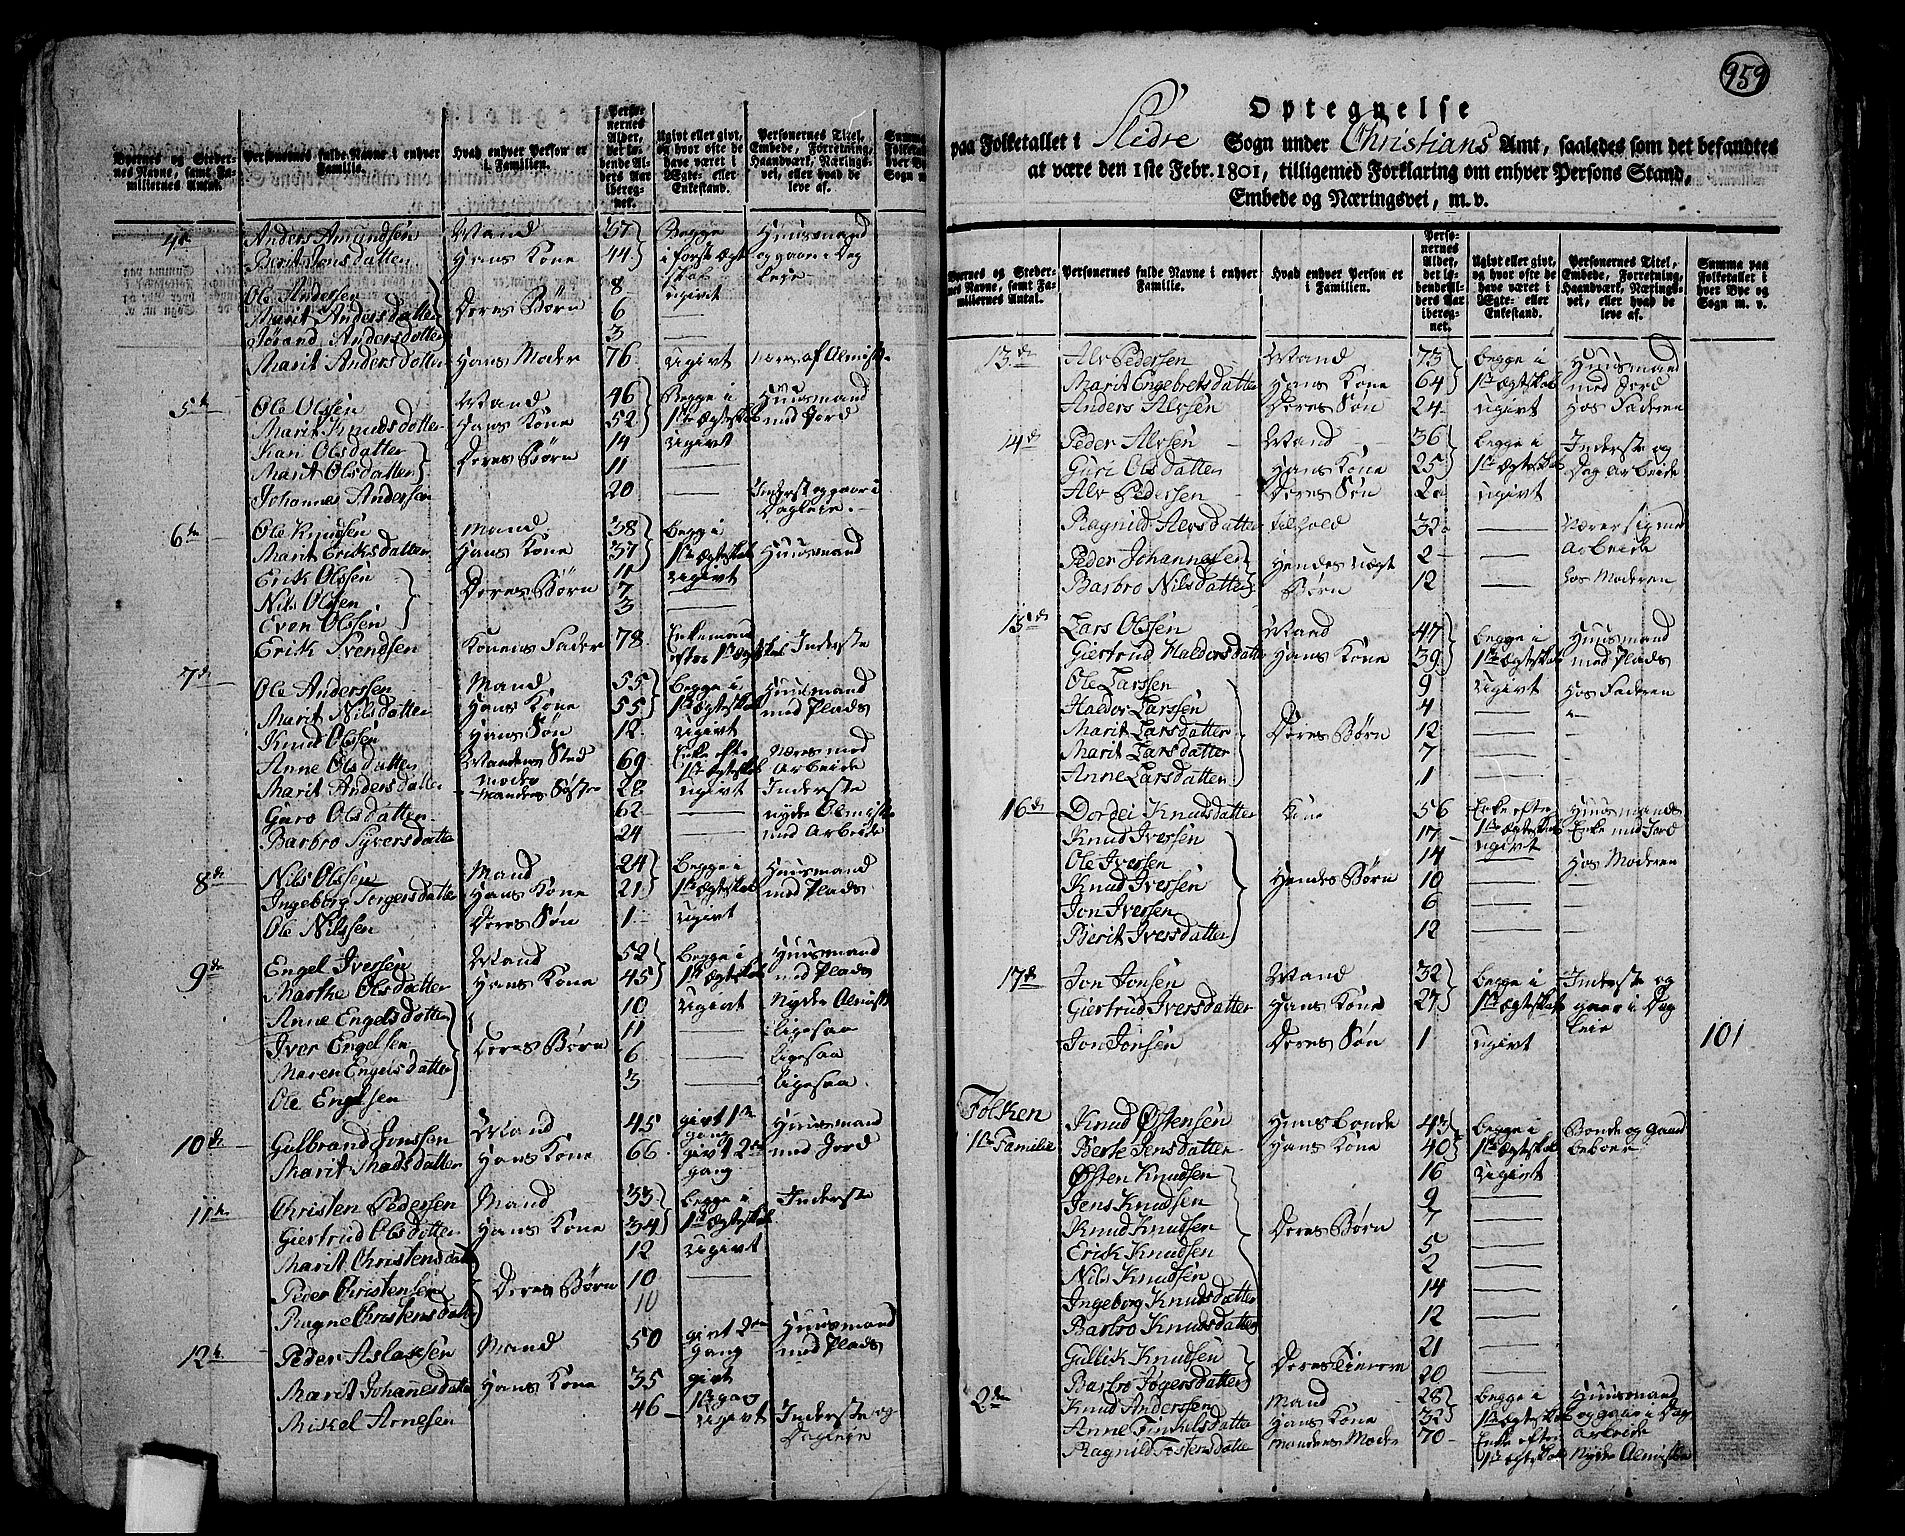 Byernes og Stedernes Navne, samt Familiernes Antal.
Personernes fulde Navne i enhver Familie.
Hvad enhver Person er i Familien.
Personernes Alder, det løbende Alders Aar iberegnet.
Ugivt eller givt, og hvor ofte de have været i Ægte- eller Enkestand.
Personernes Titel, Embede, Forretning, Haandværk, Næringsvei, eller hvad de leve af.
4de Anders Amundsen Mand 67 Begge Huusmand
Berit Jensdatten Hans Kone 44 i første Ægteskab og gaar i Dagleie
Ole Andersen 8 ugivt
Marit Andersdatter Deres Børn 6 —
Jørand Andersdotter 3
Marit Andersdatter Hans Moder 76 ugivt
5te Ole Olssen Mand 46 Begge i Huusmand
Marit Knudsdotter Hans Kone 52 1ste Ægteskab med Jord
Kari Olsdatter 14 ugivt
Marit Olsdatter Deres Børn 11 —
Johannes Andersen 20 — Inderst og gaar i Dagleie
6te Ole Knudsen Mand 38 begge i
Marit Eriksdatter Hans Kone 37 1ste Ægteskab Huusmand
Erik Olssen 11 ugivt
Nils Olssen Deres Børn 7 —
Even Olssen 3 —
Erik Svendsen Konens Fader 78 Enkemand efter 1ste Ægteskab Inderste
7de Ole Anderssen Mand 55 begge i Huusmand
Marit Nilsdatter Hans Kone 55 1ste Ægteskab med Plads
Knud Olssen Hans Søn 12 ugivt
Anne Olsdatten Mandens Stedmoder 69 Enke efter 1ste Ægteskab Næres med Arbeide
Marit Andersdatter Mandens Søster 22 ugivt Inderste
Guro Olsdatter 62 — nyder Almisse
Barbro Syversdatter 24 — med Arbeide
8de Nils Olssen Mand 24 begge i Huusmand
Ingeborg Torgersdatter Hans Kone 21 1ste Ægteskab med Plads
Ole Nilssen Deres Søn 1 ugivt
9de Engel Iversen Mand 52 begge i Huusmand
Marthe Olsdatter Hans Kone 45 1ste Ægteskab med Plads
Anne Engelsdotter 10 ugivt Nyder Almisse
Iver Engelsen Deres Børn 11 — ligesaa
Maren Engelsdatter 6 — ligesaa
Ole Engelsen 3 — ligesaa
10de Gulbrand Jonssen Mand 45 givt 1ste gang Huusmand
Marit Madsdatter Hans Kone 66 givt 2den gang med Jord
11te Christen Pedersen Mand 33 begge i Inderste
Giertrud Olsdotter Hans Kone 34 1ste Ægteskab
Marit Christensdatter 12 ugivt
Peder Christensen Deres Børn 10 —
Ragne Christensdatter 10
12te Peder Aslaksen Mand 50 givt 2den gang Huusmand med Plads
Marit Johannesdatter Hans Kone 35 givt 1ste gang
Mikkel Arnesen 46 ugivt Inderste og Dagleie
959
Optegnelse
paa Folketallet i Slidre Sogn under Christians Amt, saaledes som det befandtes
at være den 1ste Febr. 1801, tilligemed Forklaring om enhver Persons Stand,
Embede og Næringsvei, m. v.
Byernes og Stedernes Navne, samt Familiernes Antal.
Personernes fulde Navne i enhver Familie.
Hvad enhver Person er i Familien.
Personernes Alder, det løbende Alders Aar iberegnet.
Ugivt eller givt, og hvor ofte de have været i Ægte- eller Enkestand.
Personernes Titel, Embede, Forretning, Haandværk, Næringsvei, eller hvad de leve af.
Summa paa Folketallet i hver Bye og Sogn m. v.
13de Alv Pedersen Mand 73 begge i Huusmand
Marit Engebretsdatter Hans Kone 64 1ste Ægteskab med Jord
Anders Alvsen Deres Søn 24 ugivt Hos Faderen
14de Peder Alvsen Mand 36 begge i Inderste og
Guri Olsdatter Hans Kone 25 1ste Ægteskab Dag Arbeide
Alv Pedersen Deres Søn 2 ugivt
Ragnild Alvsdatter tilhold 32 — Nærer sig med Arbeide
Peder Johannesen Hendes uægt 2 —
Barbro Nilsdatter Børn 12 — hos Moderen
15de Lars Olssen Mand 47 begge i Huusmand
Giertrud Haldorsdatter Hans Kone 39 1ste Ægteskab med Plads
Ole Larssen 9 ugivt Hos Faderen
Haldor Larssen 4 — —
Marit Larsdatter Deres Børn 12 — —
Marit Larsdatter 7 — —
Anne Larsdatter 1 —
16de Dordei Knudsdatter Kone 56 Enke efter Huusmands
Knud Iversen 17 1ste Ægteskab Enke med Jord
Ole Iversen 14 ugivt Hos Moderen
Knud Iversen Hendes Børn 10 — —
Jon Iversen 6 — —
Berit Iversdatter 12 — —
17de Jon Jonsen Mand 32 begge i Inderste og
Giertrud Iversdatter Hans Kone 27 1ste Ægteskab gaar i Dagleie
Jon Jonsen Deres Søn 1 ugivt 101
Folken
1ste Familie Knud Østensen Huusbonde 43 begge i Bonde og gaardbeboer
Berte Jensdatter Hans Kone 40 1ste Ægteskab
Østen Knudsen 16 ugivt
Jens Knudsen 9 —
Knud Knudsen Deres Børn 7 —
Erik Knudsen 5 —
Nils Knudsen 2 —
Ingeborg Knudsdatter 14 —
Barbro Knudsdatter 12 —
Gullik Knudsen 21 —
Barbro Togersdatter Deres Tienere 20 —
2den Knud Andersen Mand 28 begge i Huusmand
Anne Finkelsdatter Hans Kone 32 1ste Ægteskab og gaar i Dag Arbeide
Ragnild Tostensdatter Mandens Moder 70 Enke efter 1ste Ægteskab Nyder Almisse